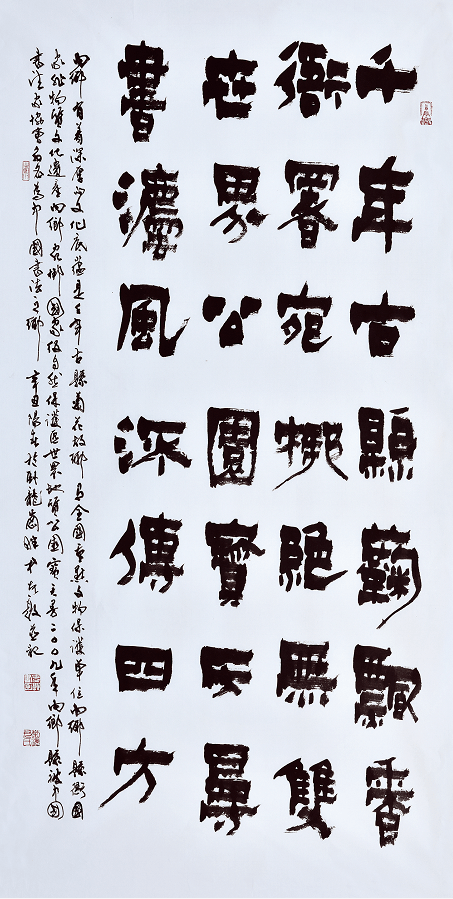 千年古縣蘜飄香
衙署宛梆絕無雙
世界公園寶天曼
書灋風流傳四方
内鄉有着深厚的文化底蘊是千年古縣菊花故鄉与全國重點文物保護單位内鄉縣衙國
家非物質文化遺產内鄉宛梆國家級自然保護區世界地質公園寶天曼二〇〇九年内鄉縣被中國
書法家協會命名為中國書法之鄉 辛丑陽春於卧龍崗畔